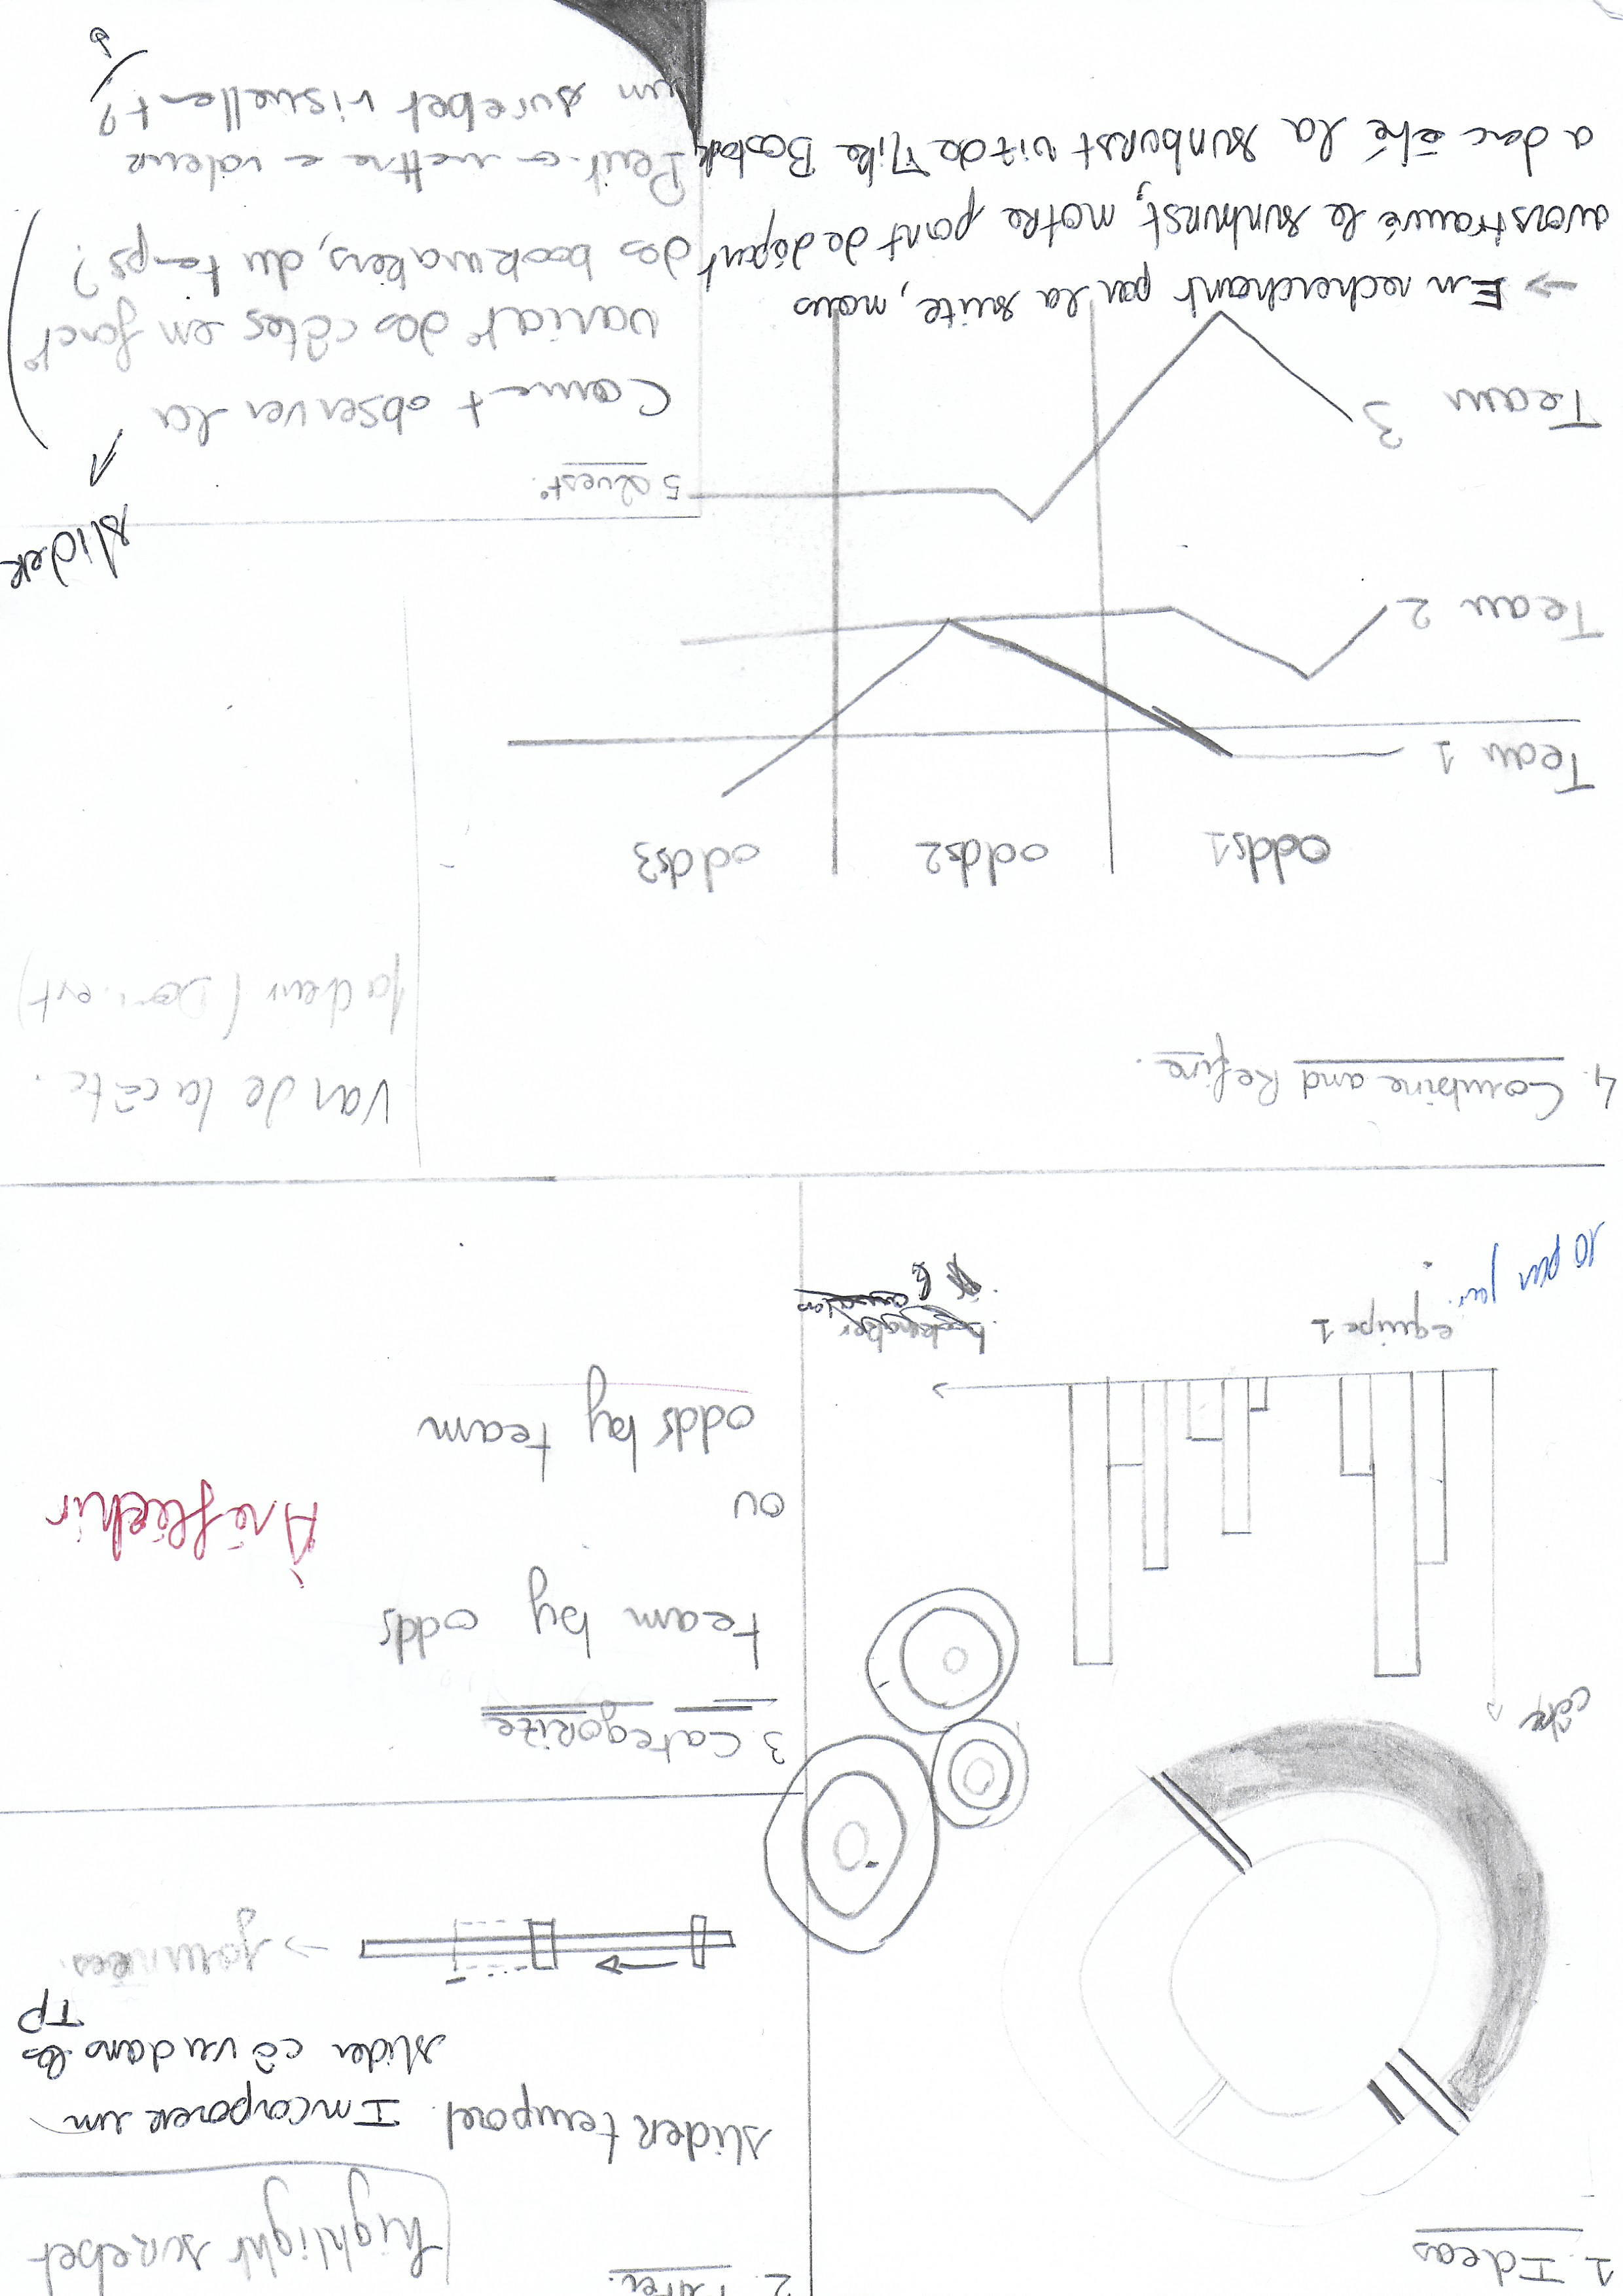 1. Ideas
côte
equipe 1
bookmaker
10 par jour.
2. Filter.
highlight surebet
slider temporel. Incorporer un
slider cô vu dans les
TP
→ journées.
3. Categorize
team by odds
ou
À réfléchir
odds by team
4. Combine and Refine.
var de la côte.
facteur (Dom. ext)
odds1 odds2 odds3
Team 1
Team 2
Team 3
→ En recherchant par la suite, nous
avons trouvé le sunburst, notre point de départ
a donc été la sunburst viz de Mike Bostock
slider
5 Quest°.
Comment observer la
variat° des côtes en fonct°
des bookmakers, du temps?
Peut-on mettre en valeur
un surebet visuellement?